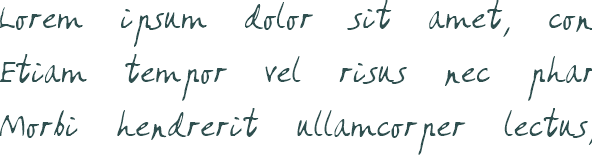 Lorem ipsum dolor sit amet, con
Etiam tempor vel risus nec phar
Morbi hendrerit ullamcorper lectus,